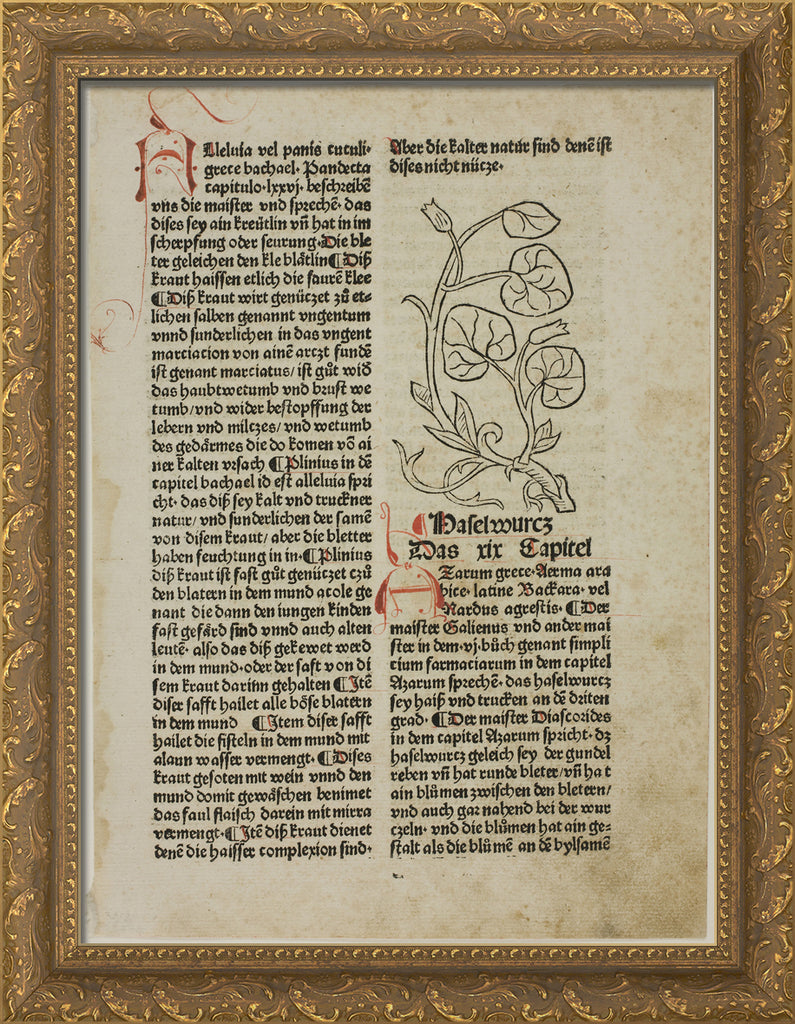 Alleluia vel panis cuculi·
grece bachael· Pandecta
capitulo·lxxvj· beschreibē
vns die maister vnd sprechē· das
dises sey ain kreütlin vñ hat in im
scherpfung oder seurung·Die ble
ter geleichen den kle blåtlin¶Diß
kraut haissen etlich die saurē klee
¶Diß kraut wirt genüczet zů et⸗
lichen salben genannt vngentum
vnnd sunderlichen in das vngent
marciacion von ainē arczt fundē
ist genant marciatus/ ist gůt wid̕
das haubtwetumb vnd brust we
tumb/vnd wider bestopffung der
lebern vnd milczes/ vnd wetumb
des gedårmes die do komen vō ai
ner kalten vrsach ¶Plinius in dē
capitel bachael id est alleluia spri
cht· das diß sey kalt vnd truckner
natur/ vnd sunderlichen der samē
von disem kraut/ aber die bletter
haben feuchtung in in·¶Plinius
diß kraut ist fast gůt genüczet czů
den blatern in dem mund acole ge
nant die dann den iungen kinden
fast gefård sind vnnd auch alten
leutē· also das diß gekewet werd
in dem mund·oder der saft von di
sem kraut darinn gehalten ¶Itē
diser safft hailet alle böse blatern
in dem mund ¶Item diser safft
hailet die fisteln in dem mund mit
alaun wasser vermengt·¶Dises
kraut gesoten mit wein vnnd den
mund domit gewåschen benimet
das faul flaisch darein mit mirra
vermengt·¶Itē diß kraut dienet
denē die haisser complexion sind·
Aber die kalter natur sind denē ist
dises nicht nücze·
¶Haselwurcz
Das xix Capitel
Azarum grece·Aerma ara
bice· latine Backara· vel
Nardus agrestis· ¶Der
maister Galienus vnd ander mai
ster in dem·vj·bůch genant simpli
cium farmaciarum in dem capitel
Azarum sprechē· das haselwurcz
sey haiß vnd trucken an dē driten
grad· ¶Der maister Diascorides
in dem capitel Azarum spricht·dz
haselwurcz geleich sey der gundel
reben vñ hat runde bleter/vñ ha t
ain blůmen zwischen den bletern/
vnd auch gar nahend bei der wur
czeln· vnd die blůmen hat ain ge⸗
stalt als die blůmē an dē bylsamē